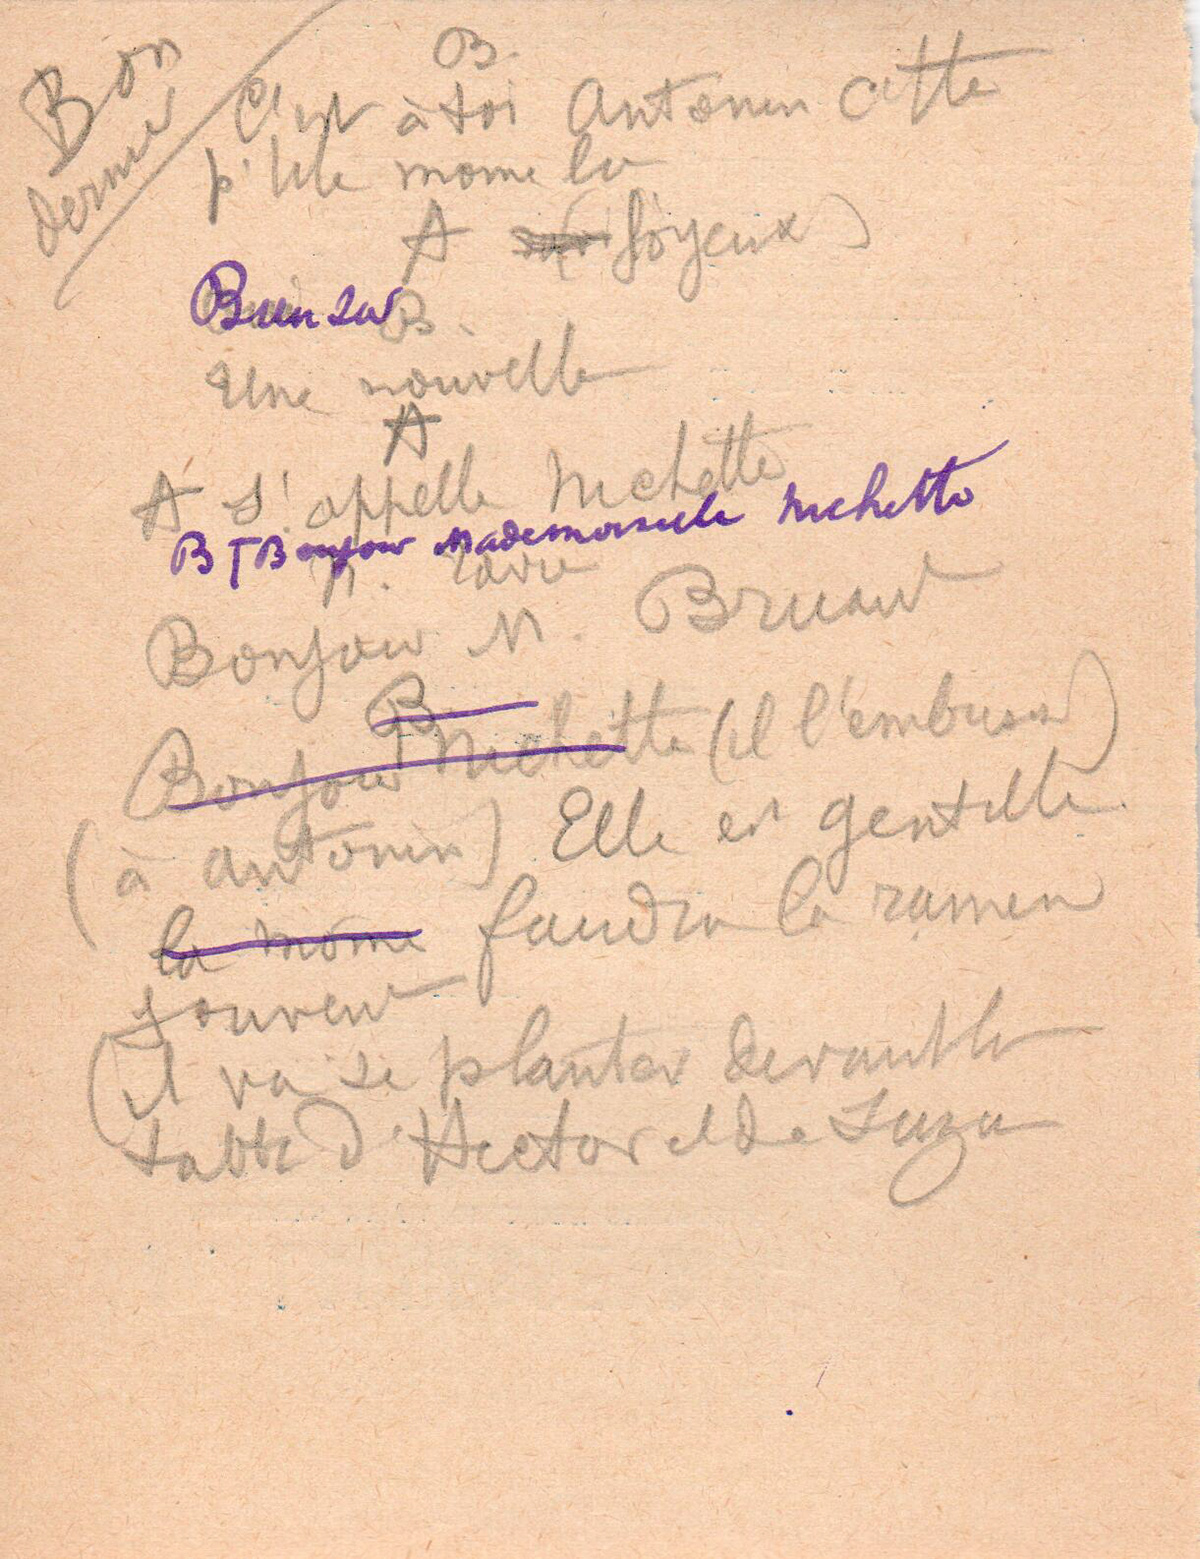 Bon
dernier
B.
C'est à toi Antonin cette
p'tite mome la
A (Joyeux)
Bien sur B.
Une nouvelle
A
A s'appelle Nichette
B Bonjour Mademoiselle Nichette
N.
Bonjour M. Bruant
B
Bonjour Nichette (il l'embrasse)
(à Antonin) Elle est gentille
la mome faudra la ramener
souvent
(il va se planter devant la
table d'Hector et de Suza